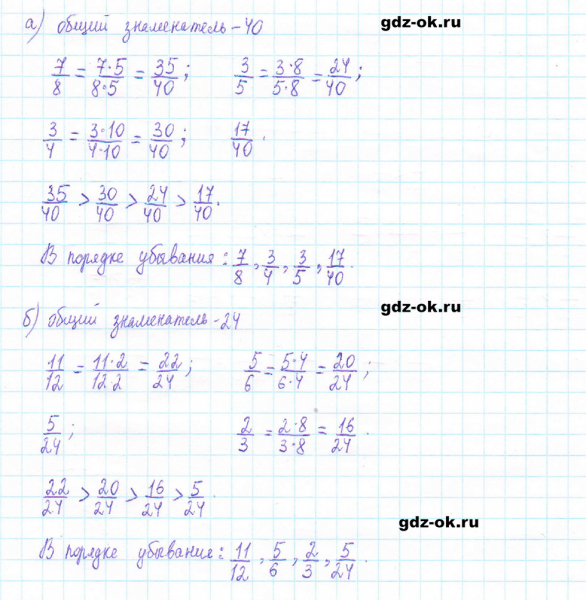 gdz-ok.ru
а) общий знаменатель - 40
7/8 = 7·5/8·5 = 35/40; 3/5 = 3·8/5·8 = 24/40;
3/4 = 3·10/4·10 = 30/40; 17/40.
35/40 > 30/40 > 24/40 > 17/40.
gdz-ok.ru
В порядке убывания: 7/8, 3/4, 3/5, 17/40.
gdz-ok.ru
б) общий знаменатель - 24
11/12 = 11·2/12·2 = 22/24; 5/6 = 5·4/6·4 = 20/24;
5/24; 2/3 = 2·8/3·8 = 16/24.
22/24 > 20/24 > 16/24 > 5/24.
gdz-ok.ru
В порядке убывание: 11/12, 5/6, 2/3, 5/24.